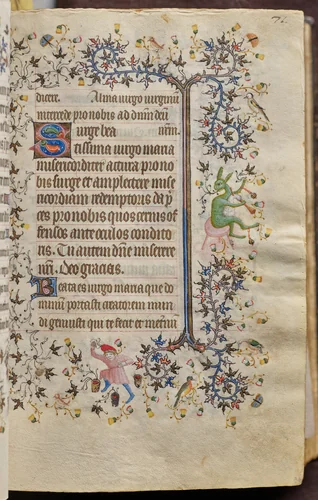 dicere. Alma virgo virginum
intercede pro nobis ad dominum deum
Surge bea nrm.
tissima virgo maria
misericorditer actura pro no
bis surge et amplectere mise
ricordiam redemptoris
es pro nobis quos cernis of
fensos ante oculos condito
ris. Tu autem dñe miserere
nr̃i. Deo gracias.
Beata es virgo maria que do
minũ portasti creatorem mun
di genuisti qui te fecit et in etnũ